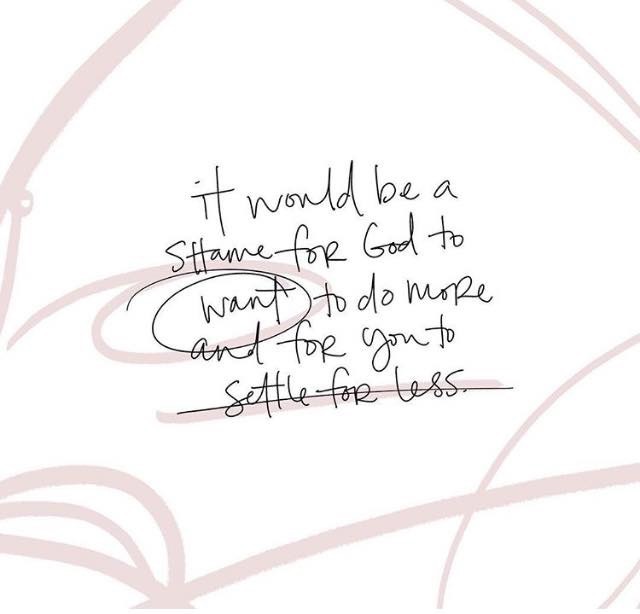 it would be a
shame for God to
want to do more
and for you to
settle for less.